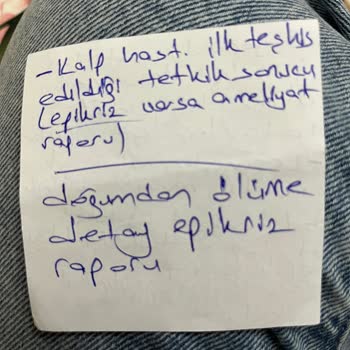 - Kalp hast. ilk teşhis
edildiği tetkik sonucu
(epikriz varsa ameliyat
raporu)
doğumdan ölüme
detay epikriz
raporu